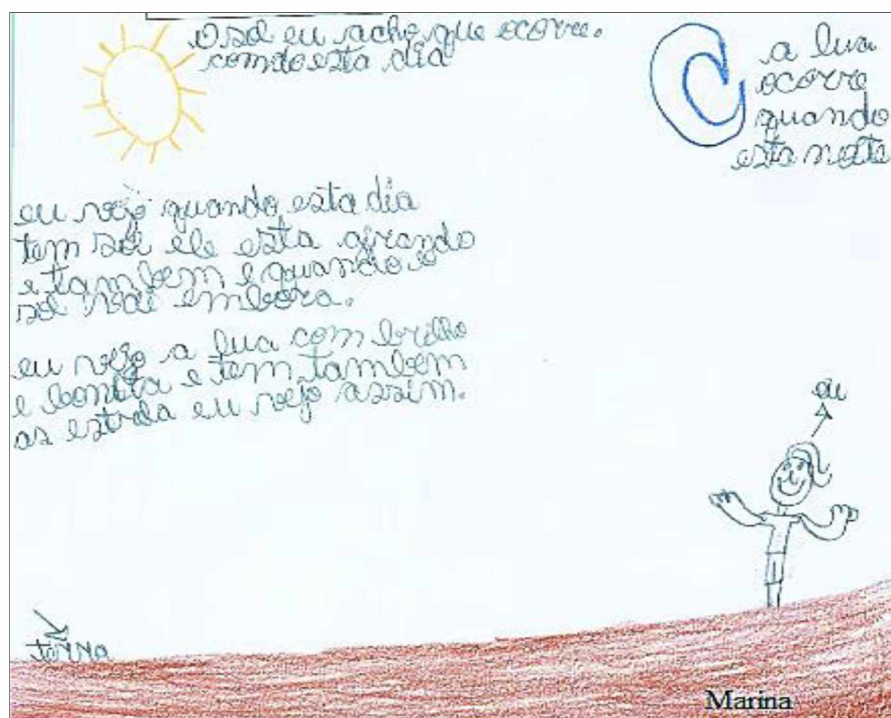 O sol eu acho que ocorre.
comdo esta dia
a lua
ocorre
quando
esta noite
eu vejo quando esta dia
tem sol ele esta girando
e tambem e quando o
sol vai embora.
eu vejo a lua com brilho
e bonita e tem tambem
as estrela eu vejo assim.
eu
terra
Marina